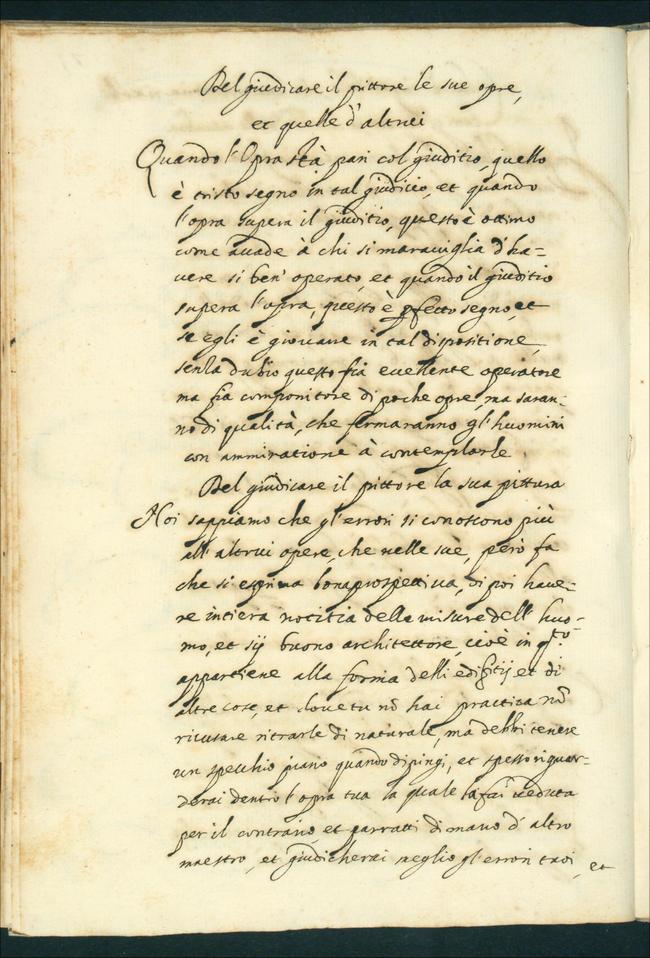 Del giudicare il pittore le sue opre,
et quelle d'altrui
Quando l'Opra stà pari col giuditio, quello
è tristo segno in tal giudicio, et quando
l'opra supera il giuditio, questo è ottimo
come accade à chi si maraviglia d'ha=
vere si ben' operato, et quando il giuditio
supera l'opra, questo è pfetto segno, et
se egli è giovane in tal dispositione,
senza dubio questo fia eccellente operatore
ma fia componitore di poche opre, ma saran=
no di qualità, che fermaranno gl'huomini
con ammiratione à contemplarle.
Del giudicare il pittore la sua pittura
Noi sappiamo che gl'errori si conoscono più
all'altrui opere, che nelle sue, però fa
che si esprima bona prospettiva, di poi have=
re intiera notitia delle misure dell'huo=
mo, et sij buono architettore, cioè in qto.
appartiene alla forma delli edifitij et di
altre cose, et dove tu nō hai prattica nō
ricusare ritrarle di naturale, ma debbi tenere
un specchio piano quando dipingi, et spesso riguar=
derai dentro l'opra tua la quale la fai veduta
per il contrario, et parratti di mano d'altro
maestro, et giudicherai meglio gl'errori tuoi,
et